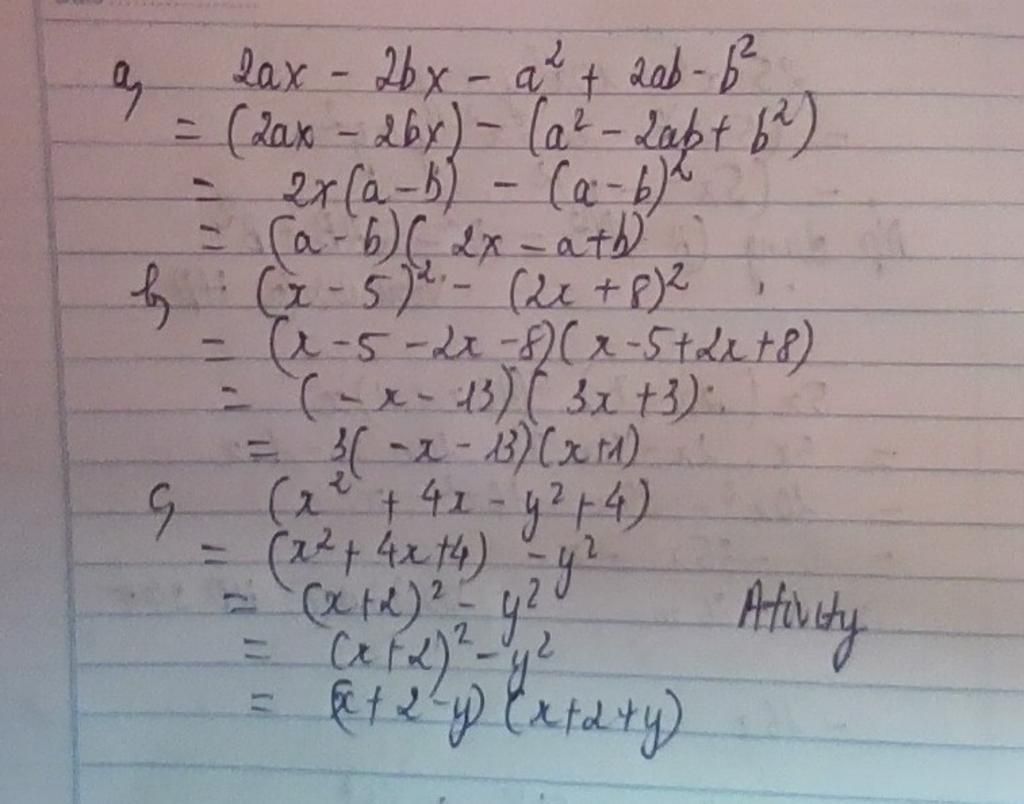 a, 2ax - 2bx - a² + 2ab - b²
= (2ax - 2bx) - (a² - 2ab + b²)
= 2x(a - b) - (a - b)²
= (a - b)(2x - a + b)
b, (x - 5)² - (2x + 8)²
= (x - 5 - 2x - 8)(x - 5 + 2x + 8)
= (-x - 13)(3x + 3)
= 3(-x - 13)(x + 1)
c, (x² + 4x - y² + 4)
= (x² + 4x + 4) - y²
= (x + 2)² - y²
= (x + 2)² - y²
= (x + 2 - y)(x + 2 + y)